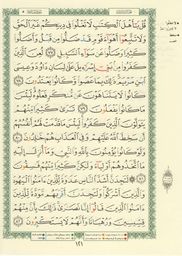 قُلْ يَٰٓأَهْلَ ٱلْكِتَٰبِ لَا تَغْلُوا۟ فِى دِينِكُمْ غَيْرَ ٱلْحَقِّ
وَلَا تَتَّبِعُوٓا۟ أَهْوَآءَ قَوْمٍ قَدْ ضَلُّوا۟ مِن قَبْلُ وَأَضَلُّوا۟
كَثِيرًا وَضَلُّوا۟ عَن سَوَآءِ ٱلسَّبِيلِ ٧٧ لُعِنَ ٱلَّذِينَ
كَفَرُوا۟ مِنۢ بَنِىٓ إِسْرَٰٓءِيلَ عَلَىٰ لِسَانِ دَاوُۥدَ وَعِيسَى
ٱبْنِ مَرْيَمَ ذَٰلِكَ بِمَا عَصَوا۟ وَّكَانُوا۟ يَعْتَدُونَ ٧٨
كَانُوا۟ لَا يَتَنَاهَوْنَ عَن مُّنكَرٍ فَعَلُوهُ لَبِئْسَ مَا
كَانُوا۟ يَفْعَلُونَ ٧٩ تَرَىٰ كَثِيرًا مِّنْهُمْ يَتَوَلَّوْنَ
ٱلَّذِينَ كَفَرُوا۟ لَبِئْسَ مَا قَدَّمَتْ لَهُمْ أَنفُسُهُمْ
أَن سَخِطَ ٱللَّهُ عَلَيْهِمْ وَفِى ٱلْعَذَابِ هُمْ خَٰلِدُونَ ٨٠
وَلَوْ كَانُوا۟ يُؤْمِنُونَ بِٱللَّهِ وَٱلنَّبِىِّ وَمَآ أُنزِلَ إِلَيْهِ
مَا ٱتَّخَذُوهُمْ أَوْلِيَآءَ وَلَٰكِنَّ كَثِيرًا مِّنْهُمْ فَٰسِقُونَ ٨١
لَتَجِدَنَّ أَشَدَّ ٱلنَّاسِ عَدَٰوَةً لِّلَّذِينَ ءَامَنُوا۟ ٱلْيَهُودَ
وَٱلَّذِينَ أَشْرَكُوا۟ وَلَتَجِدَنَّ أَقْرَبَهُم مَّوَدَّةً لِّلَّذِينَ
ءَامَنُوا۟ ٱلَّذِينَ قَالُوٓا۟ إِنَّا نَصَٰرَىٰ ذَٰلِكَ بِأَنَّ مِنْهُمْ
قِسِّيسِينَ وَرُهْبَانًا وَأَنَّهُمْ لَا يَسْتَكْبِرُونَ ٨٢
١٢١